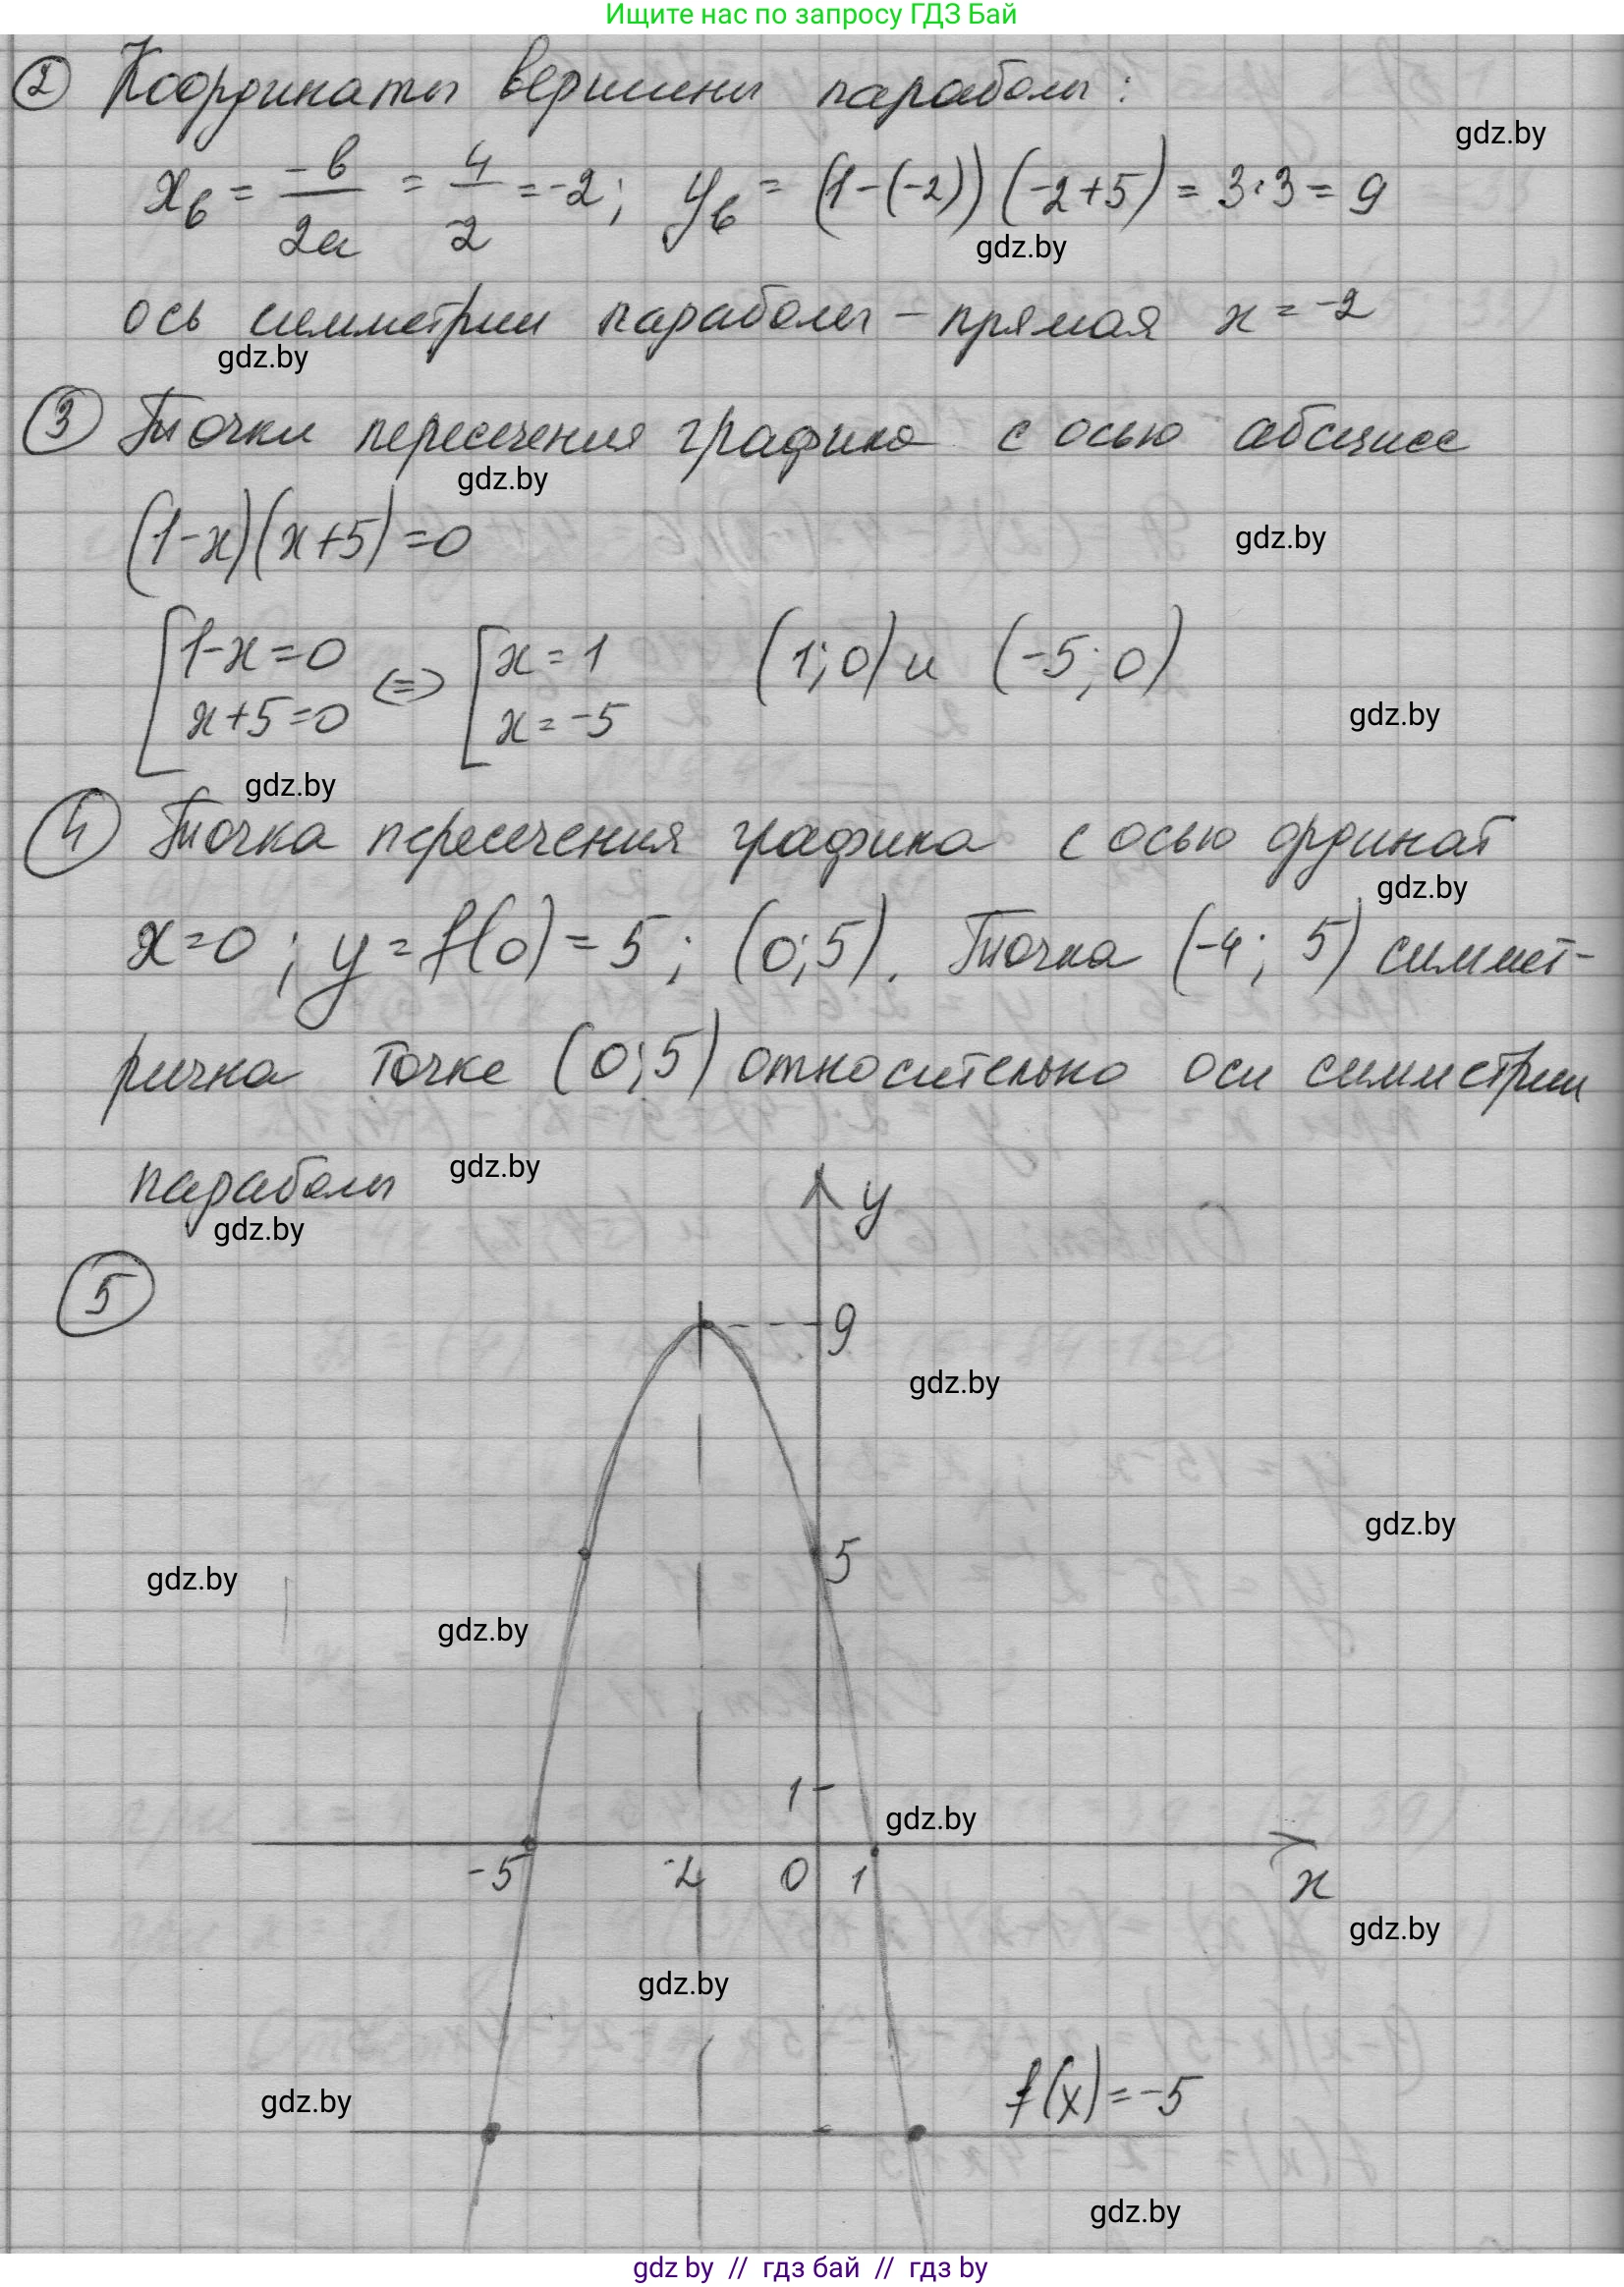 Ищите нас по запросу ГДЗ Бай
② Координаты вершины параболы:
gdz.by
xв = -b/2a = 4/-2 = -2; yв = (1-(-2))(-2+5) = 3·3 = 9
gdz.by
ось симметрии параболы - прямая x = -2
gdz.by
③ Точки пересечения графика с осью абсцисс
gdz.by
(1-x)(x+5)=0
gdz.by
[1-x=0 <=> [x=1 (1;0) и (-5;0)
x+5=0 x=-5
gdz.by
gdz.by
④ Точка пересечения графика с осью ординат
gdz.by
x=0; y=f(0)=5; (0;5). Точка (-4; 5) симмет-
рична точке (0;5) относительно оси симметрии
параболы
gdz.by
y
gdz.by
⑤
9
gdz.by
gdz.by
5
gdz.by
gdz.by
1
gdz.by
-5 -2 0 1 x
gdz.by
gdz.by
f(x)=-5
gdz.by
gdz.by
gdz by // гдз бай // гдз by